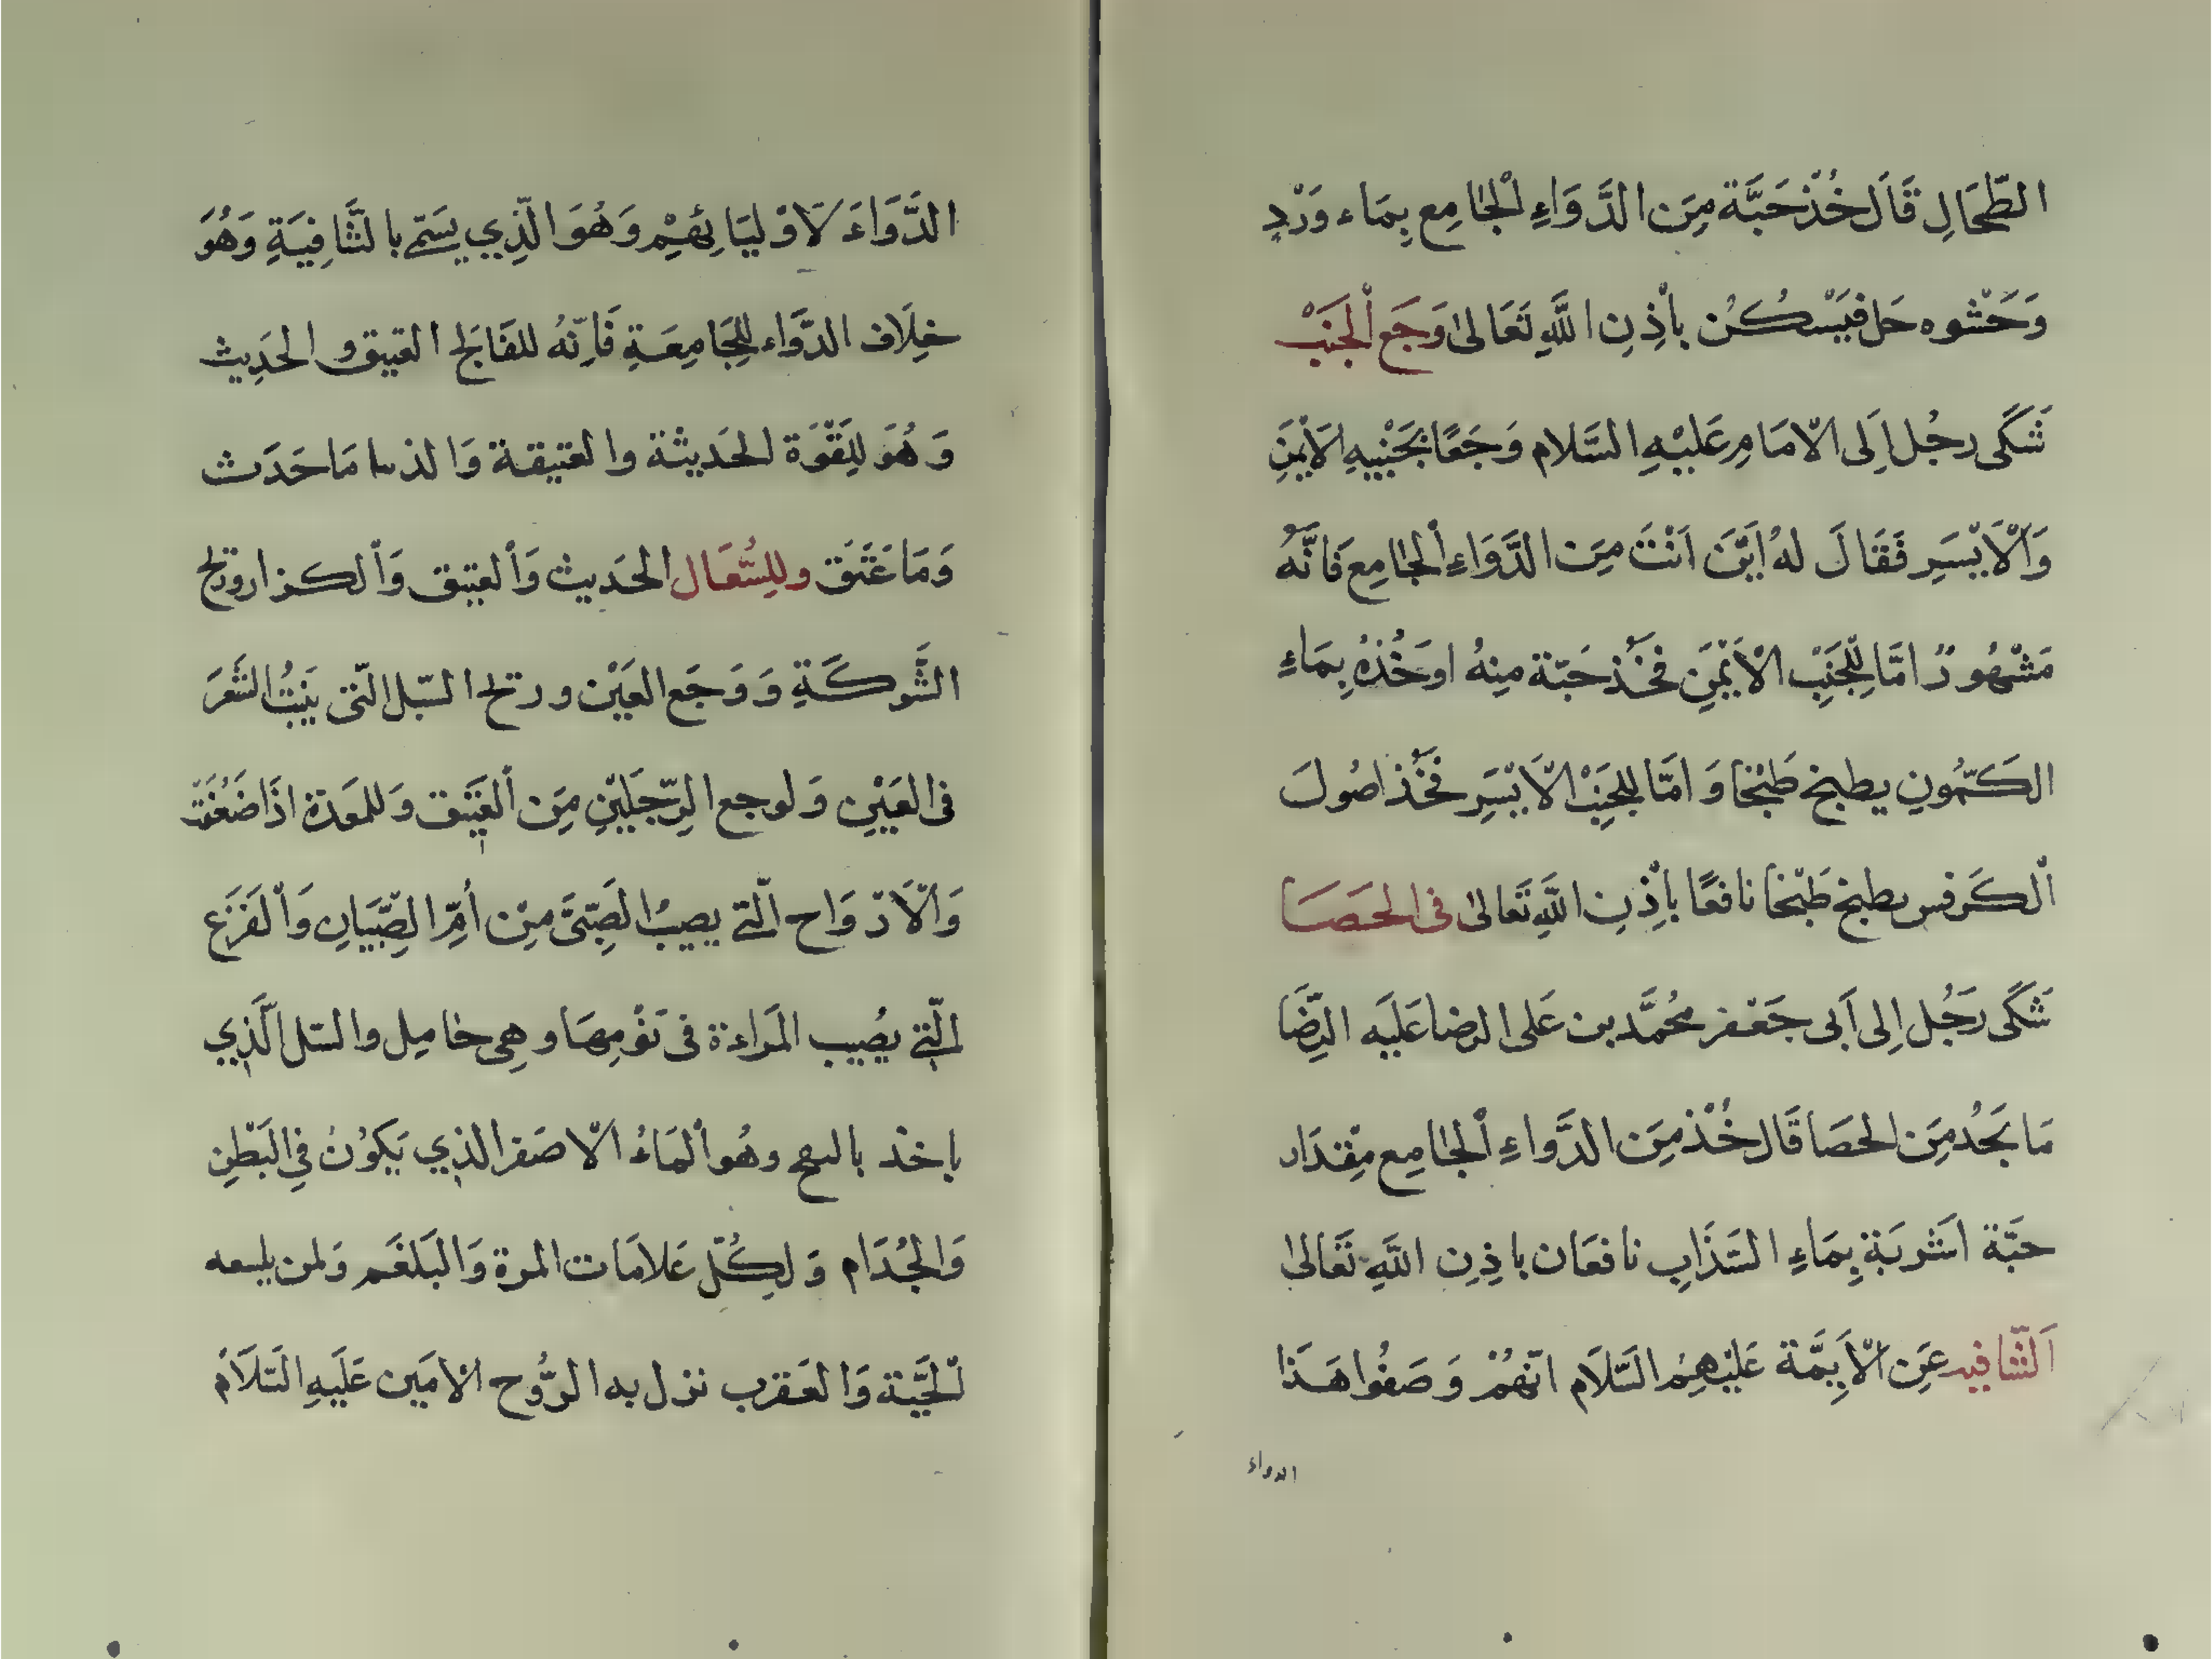 الطِّحَالِ قَالَ خُذْ حَبَّة مِنَ الدَّوَاءِ الْجامِع بِمَاء وَرْدٍ
وَحَسْوه خل فَيَسْكُن بِأْذِنِ اللَّهِ تَعَالى وَجَع الْجَنَبْ
شَكَى رجُل اِلَى الْامَامِ عَلَيْهِ السَّلام وَجَعًا بِجَنْبِيهِ الاَيْمَنِ
وَالْاَيْسَرِ فَقَالَ لهُ اَيْنَ اَنْتَ مِنَ الدَّوَاءِ الْجامِعَ فَانَّهُ
مَشْهُورٌ امَّا لِلْجَنِبْ الْاَيْمَنِ فَخُذ حَبَّة مِنهُ اوَخُذهُ بِمَاءِ
الكَمُّونِ يطبخ طَبْخا وَامَّا لِلجَنِبْ الْاَيْسَرِ فَخُذ اصُولَ
الْكَرفس يطبخ طَبْخا نافعًا بِأْذِنِ اللَّهِ تَعَالى فى الحَصَا
شَكَى رَجُل اِلى اَبى جَعْفر مُحَمَّد بن عَلى الرضا عَلَيه الرِّضَا
مَا يَجُد مِنَ الحصَا قَال خُذْ مِنَ الدَّواءِ الْجامِع مِقدَار
حبَّة اشرَبَة بِمَاءِ السَّذَابِ نافعَان باذِنِ اللَّهِ تَعَالى
اَلشَّافيه عَنِ الْاَيِمَّة عَلَيْهِمُ السَّلَام انَّهُمْ وَصَفُوا هَذَا
الدواء
الدَّوَاءَ لَاوْلِيَائِهِمْ وَهُوَ الَّذِي يسَمّى بالشَّافِيَةِ وَهُوَ
خِلَاف الدَّوَاء لِلجَامِعَةِ فَاِنَّهُ للفَالج العتيق والحَدِيث
وَهُوَ لِلَقْوَة الحَدِيثة والعتيقة وَالد مَا حَدَث
وَمَا عَتَقَ وللِسُّعَال الحَديث وَالْعتيق وَالْكزاز وريح
الشَّوكَةِ وَوَجَع العَيْن وريح السّبل الّتى يَنبتُ الشَعَر
فى العَيْنِ وَلوجع الرِّجَليْنِ مِنَ الْعَتيق وَللمَعدَة اذَا ضَعُفَتْ
وَالْاَرْوَاح الّتي يصيبُ الصَبِّىَ مِنْ أُمِّ الصِّبْيَانِ وَالْفَزَع
الّتي يصُيب المَراءة فى نَوْمِهَا وهِى حامِل والسّل الَّذِي
ياخذ بالنفخ وهُو الْمَاءُ الْاصفَر الذِي يَكوُنُ في البَطْنِ
وَالجُذَام وَلِكُلّ عَلامَات المرة وَالبَلغَم وَلمن يلسعه
الحَيَّة وَالعَقرب نزل به الرُّوح الْامَين عَلَيهِ السَّلَام